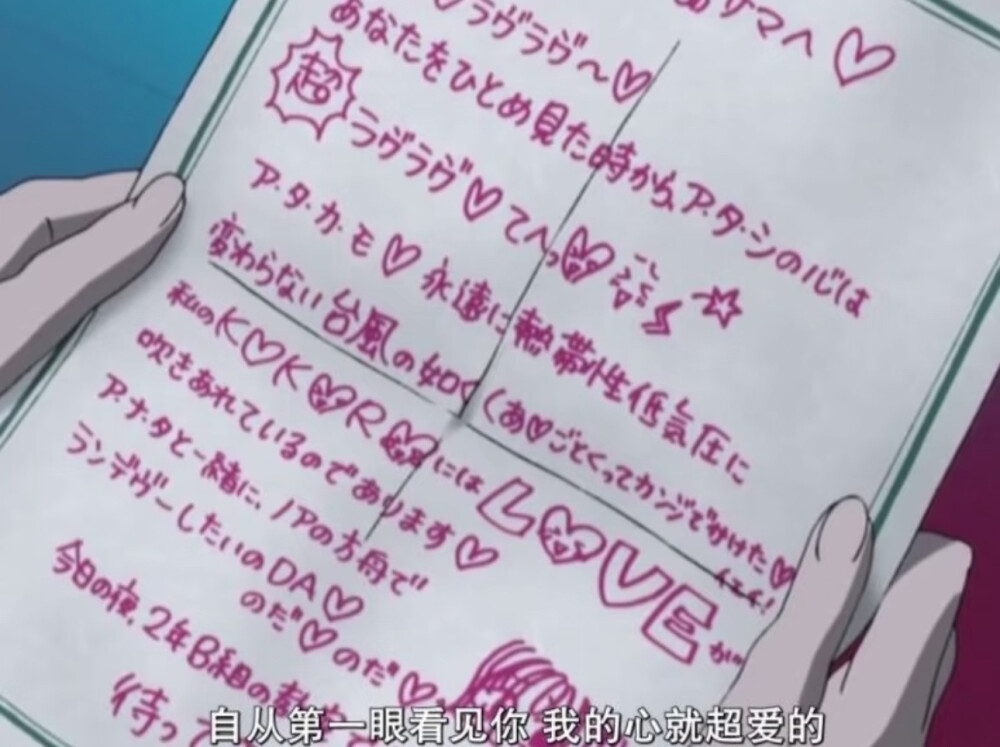 サマへ♡
♡ラヴラヴ〜♡
あなたをひとめ見た時から、ア・タ・シの心は
超ラヴラヴ♡てへっ
ア・タ・カ・モ♡永遠に熱帯性低気圧に
変わらない台風の如く(あ♡ごとくってカンジでかけた♡
イエイ!
私のK♡K♡R♡にはL♡VEが
吹きあれているのであります♡
ア・ナ・タと一緒に、ノアの方舟で
ランデヴーしたいのDA♡
のだ♡のだ♡
今日の夜、2年B組の教室で
待って
自从第一眼看见你 我的心就超爱的